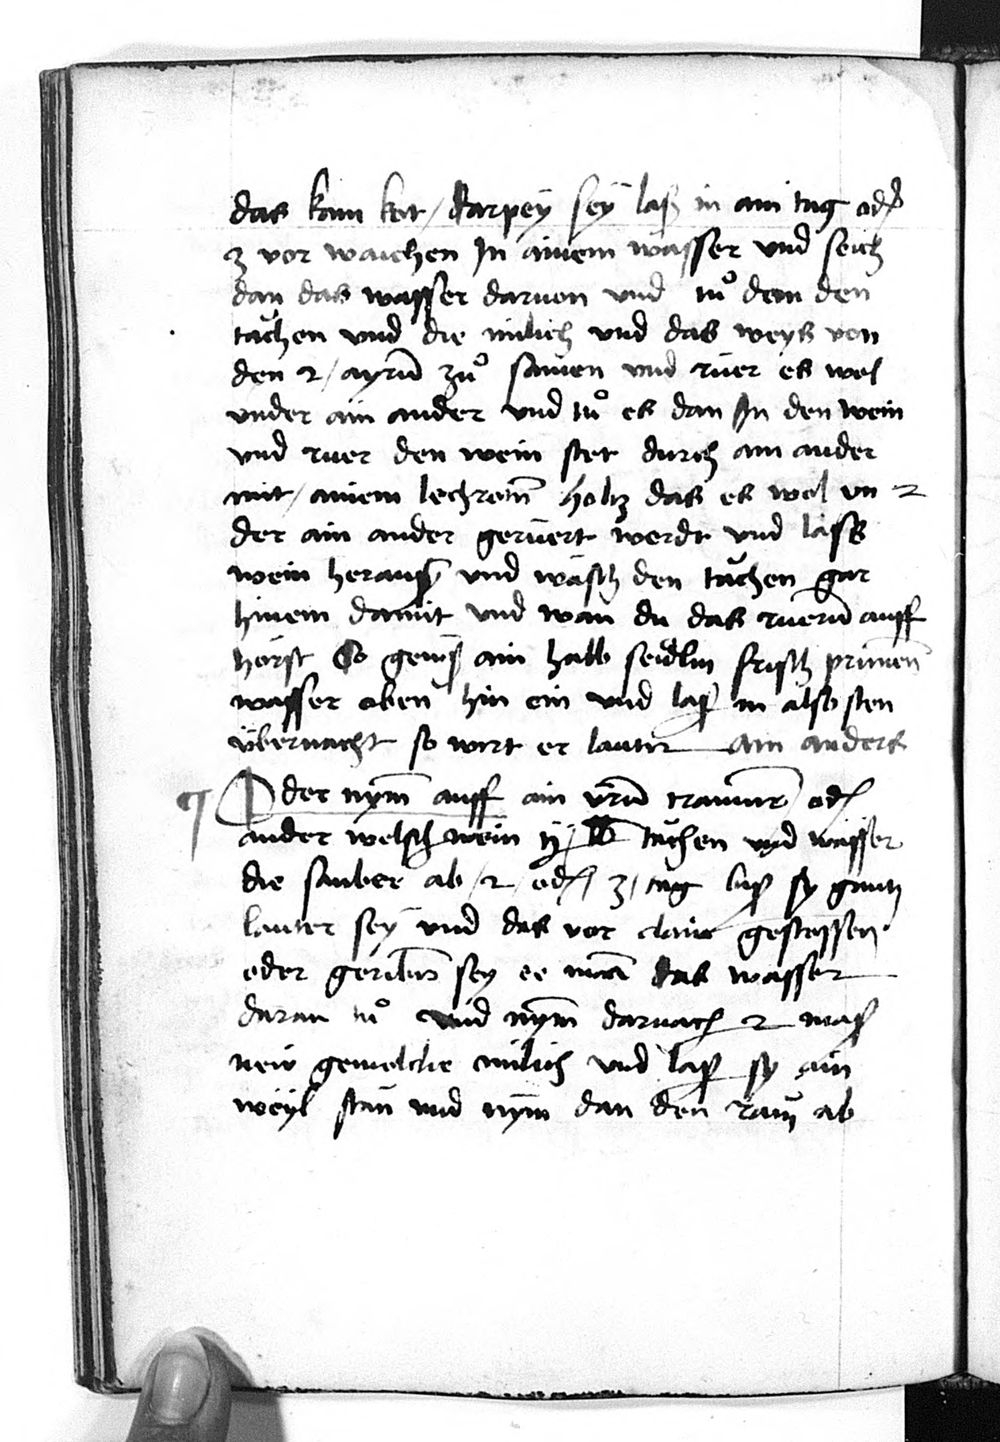 das kain kot / darpey sey laß in ain tag od̉
3 vor waichen In ainem wasser vnd seich
dan das wasser daruon vnd tuͦ dem den
tachen vnd die milich vnd das weys von
den 2 / ayrn̄ zuͦ samen vnd rüer es wol
vnder ain ander vnd tuͦ es dan In den wein
vnd rüer den wein stet durch ain ander
mit / ainem holtz das es wol vn
der ain ander gerüert werdt vnd lass
wein herauß vnd wäsch den tachen gar
hinein damit vnd wan du das rüern̄ auff
hörst So geuß ain halb seidlin frisch prünnen̄
wasser oben hin ein vnd laß in also sten
übernacht so wirt er lauter ain anders
Oder nym̄ auff ain vrn̄ traminr̄ od̉
ander welsch wein ij ℔ tachen vnd wässer
die sauber ab / 2 / od̉ / 3 / tag biß sy gantz
lauter sey vnd das vor clain gestossen
oder geribn̄ sey ee man̄ das wasser
daran tuͦ vnd nym̄ darnach 2 maß
new gemolche milich vnd laß sy ain
weyl stan vnd nym̄ dan den ram ab